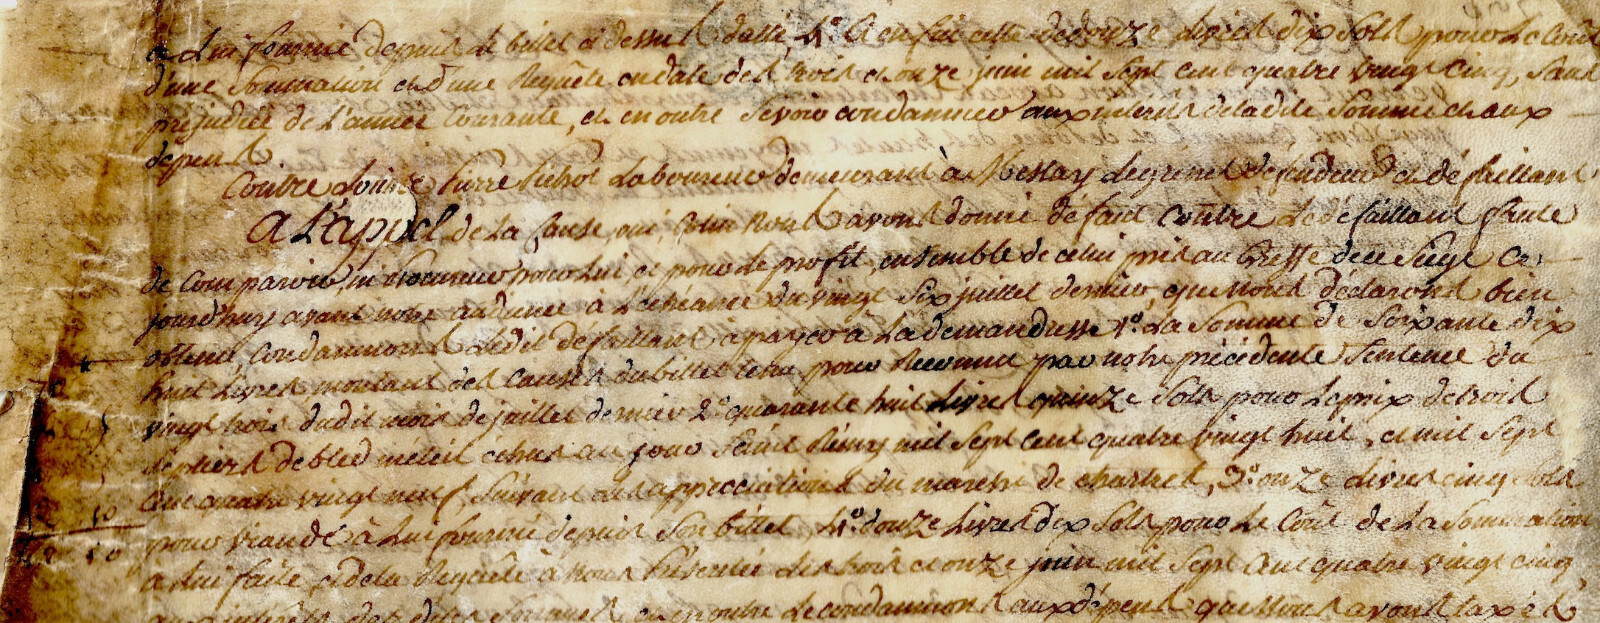 a Lui fournie depuis le billet cy dessus datté, 4° Et enfin celle de douze Livres dix Sols pour Le Cout
d'une Sommation et d'une Requête en date des trois et onze juin mil Sept Cent quatre vingt Cinq, Sans
préjudice de L'année Courante, et en outre Se voir condamner aux interets de la dite Somme et aux
depens
Contre Pierre Laboureur demeurant à deffendeur et défaillant
A L'appel de La Cause, oui, Nous avons donné défaut Contre Le défaillant faute
de Comparoir, ni Procureur pour Lui, et pour Le profit, ensemble de celui pris au Greffe de ce Siege Ce
jourd'huy avant notre audience à L'échéance du vingt Six juillet dernier, que nous déclarons bien
obtenu, Condamnons Ledit défaillant à payer à La demanderesse 1° La Somme de Soixante dix
huit Livres montant des Causes du billet tenu pour Reconnu par notre précédente Sentence du
vingt trois dudit mois de juillet dernier 2° quarante huit Livres quinze Sols pour Le prix de trois
septiers de bled méteil échus au jour Saint Rémy mil Sept Cent quatre vingt huit, et mil Sept
Cent quatre vingt neuf, Suivant les appréciations du marché de Chartres, 3° onze Livres cinq Sols
10
pour viande à Lui fournie depuis Son billet 4° douze Livres dix Sols pour Le Coût de La Sommation
10
a Lui faite, et de la Requête à Nous Présentée des trois et onze juin mil Sept Cent quatre vingt cinq
aux intérêts des dites Sommes, et en outre Le condamnons aux dépens que Nous avons taxés